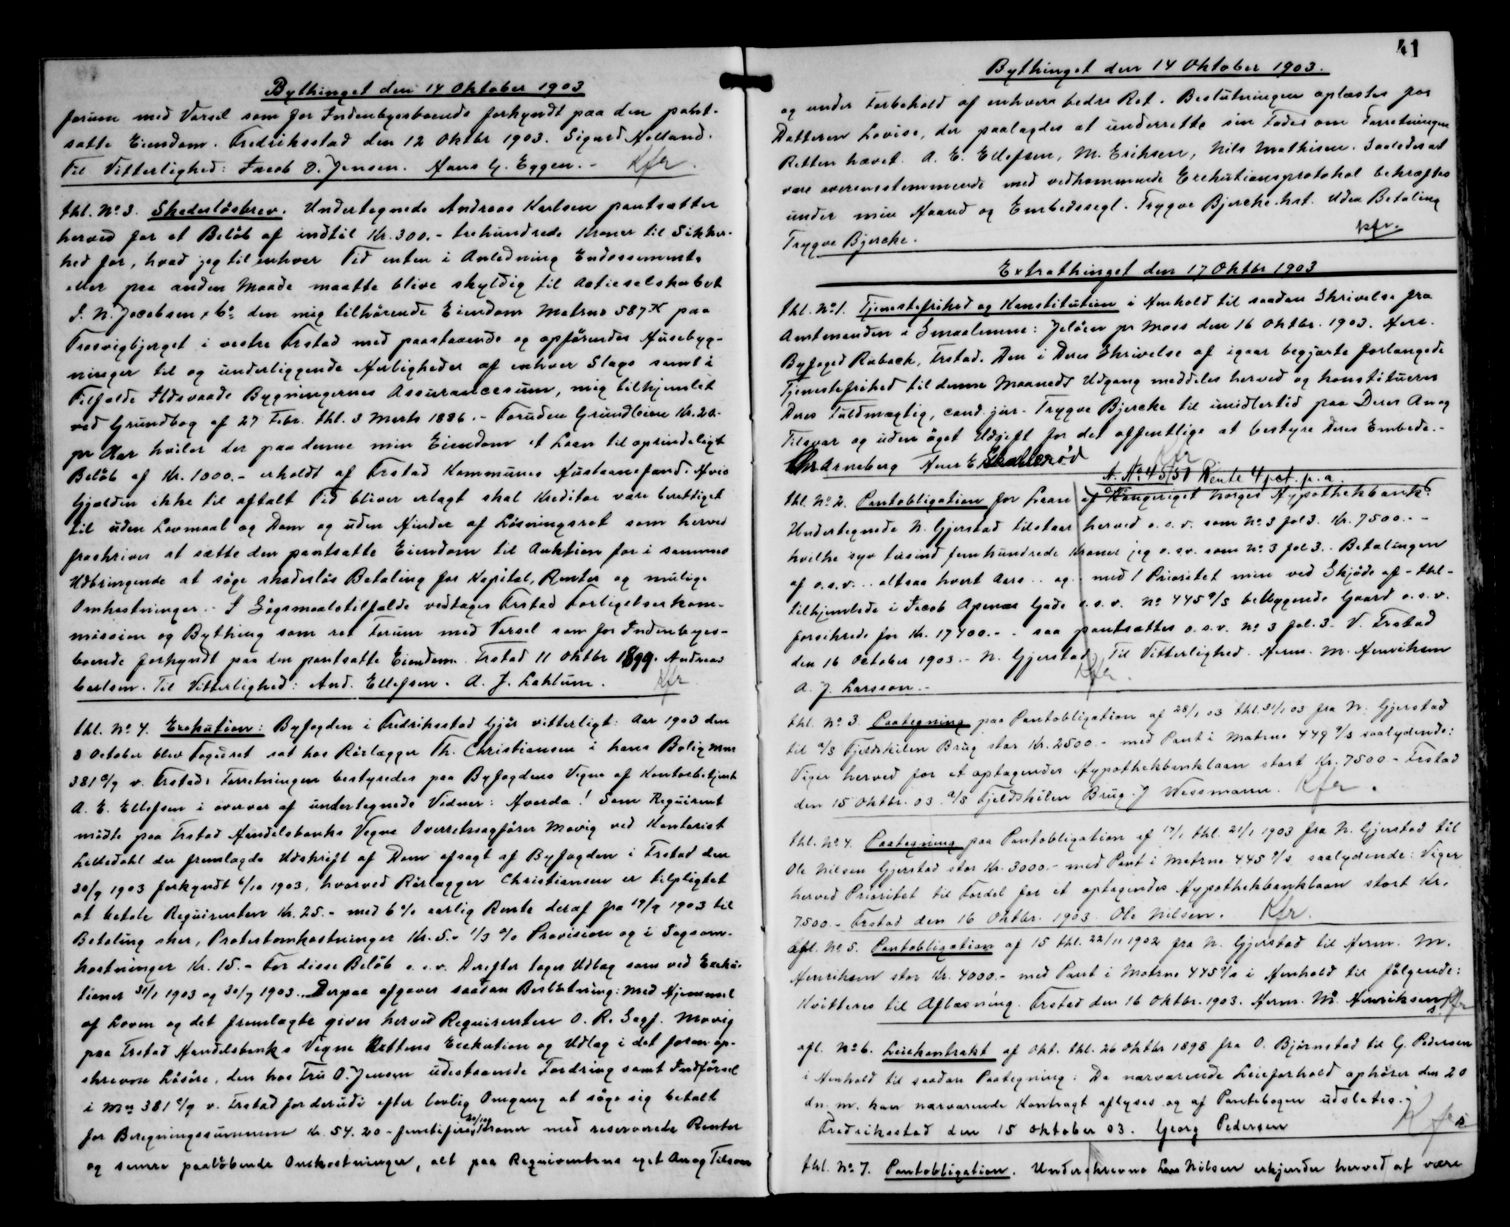 Bythinget den 14 Oktober 1903
forum med Varsel som for Indenbyesboende forkyndt paa den pant-
satte Eiendom. Fredriksstad den 12 Oktbr 1903. Sigurd Holland.
Til Vitterlighed: Jacob O. Jensen. Hans G. Eggen. - Kfr.
thl. No 3. Skadesløsbrev. Undertegnede Andreas Karlsen pantsætter
herved for et Beløb af indtil Kr. 300.- trehundrede Kroner til Sikker-
hed for, hvad jeg til enhver Tid enten i Anledning Endossements
eller paa anden Maade maatte blive skyldig til Actieselskabet
J. N. Jacobsen & Co. den mig tilhørende Eiendom Matrno 587 paa
Trosvigbjerget i vestre Frstad med paastaaende og opførendes Husebyg-
ninger til og underliggende Herligheder af enhver Slags samt i
Tilfælde Ildsvaade Bygningernes Assurancesum, mig tilhjemlet
ved Grundbog af 27 Febr. thl. 3 Marts 1886. - Foruden Grundleien Kr. 20.-
pr Aar hviler der paa denne min Eiendom et Laan til oprindeligt
Beløb af Kr. 1000.- erholdt af Frstad Kommunes Husbanefond. Hvis
Gjælden ikke til aftalt Tid bliver erlagt skal Kreditor være berettiget
til uden Lovmaal og Dom og uden Hinder af Løsningsret som herved
fraskrives at sætte den pantsatte Eiendom til Auktion for i sammes
Udbringende at søge skadesløs Betaling for Kapital, Renter og mulige
Omkostninger. I Søgsmaalstilfælde vedtages Frstad Forligelseskom-
mission og Bything som ret Forum med Varsel som for Indenbyes-
boende forkyndt paa den pantsatte Eiendom. Frstad 11 Oktbr 1899. Andreas
Carlsen. Til Vitterlighed: And. Ellefsen. A. J. Lahlum. Kfr
thl. No 4. Exekution: Byfogden i Fredriksstad Gjør vitterligt: Aar 1903 den
3 October blev Fogedret sat hos Rørlægger Th. Christiansen i hans Bolig Mno
381 a/g v. Frstad. Forretningen bestyredes paa Byfogdens Vegne af Kontorbetjent
A. E. Ellefsen i overvær af undertegnede Vidner: Hvorda! Som Requirent
mødte paa Frstad Handelsbanks Vegne Overretssagfører Movig ved Kontorist
Lilledahl der fremlagde Udskrift af Dom afsagt af Byfogden i Frstad den
30/9 1903 forkyndt /10 1903, hvorved Rørlægger Christiansen er tilpligtet
at betale Requirenten Kr. 25.- med 6% aarlig Rente deraf fra 19/9 1903 til
Betaling sker, Protestomkostninger Kr. 5.- 1/3 % Provision og i Sagsom-
kostninger Kr. 15.- For disse Beløb o.s.v. Derefter toges Udlæg som ved Exeku-
tioner 31/1 1903 og 30/9 1903. Derpaa afgaves saadan Beslutning: Med Hjemmel
af Loven og det fremlagte gives herved Requirenten O. R. Sagf. Movig
paa Frstad Handelsbanks Vegne Rettens Exekution og Udlæg i det foran op-
skrevne Løsøre, den hos Fru O. Jensen udestaaende Fordring samt Indførsel
i Mno 381 a/g v. Frstad for derudi efter lovlig Omgang at søge sig betalt
for Beregningssummen Kr. 54.20 - femtifire 20/100 Kroner med reserverede Renter
og senere paaløbende Omkostninger, alt paa Requirentens eget Ansvar og Tilsvar
41
Bythinget den 14 Oktober 1903.
og under Forbehold af enhvers bedre Ret. Beslutningen oplæstes for
Datteren Lovise, der paalagdes at underrette sin Fader om Forretningen
Retten hævet. A. E. Ellefsen, M. Eriksen, Nils Mathisen. Saaledes at
være overensstemmende med vedkommende Exekutionsprotokol bekræftes
under min Haand og Embedssegl. Trygve Bjercke. kst. Uden Betaling
Trygve Bjercke. Kfr.
Extrathinget den 17 Oktbr 1903
thl. No 1. Tjenestefrihed og Konstitution i Henhold til saadan Skrivelse fra
Amtmanden i Smaalenene: Jeløen pr Moss den 16 Oktbr. 1903. Herr.
Byfoged Raback, Frstad. Den i Deres Skrivelse af igaar begjærte forlangede
Tjenestefrihed til denne Maaneds Udgang meddeles herved og konstitueres
Deres Fuldmægtig, cand. jur. Trygve Bjercke til imidlertid paa Deres Ansvar og
Tilsvar og uden øget Udgift for det offentlige at bestyre Deres Embede.-
Arneberg Kfr
N. No 45/51 Rente 4 pct. p. a.
thl. No 2. Pantobligation for Laan af Kongeriget Norges Hypothekbank.
Undertegnede N. Gjerstad tilstaar herved o.s.v. som No 3 fol 3. Kr. 7500.--
hvilke syv tusind femhundrede Kroner jeg o.s.v. som No 3 fol 3.. Betalingen
af o.s.v... altsaa hvert Aars .. og .. med 1 Prioritet min ved Skjøde af - thl -
tilhjemlede i Jacob Apenæs Gade o.s.v. No 445 a/s bebyggende Gaard o.s.v.
forsikrede for Kr. 17400.-. saa pantsættes o.s.v. No 3 fol. 3. V. Frstad
den 16 October 1903.- N. Gjerstad. Til Vitterlighed. Herm. M. Henriksen
A. J. Larsson.- Kfr.
thl. No 3. Paategning paa Pantobligation af 28/1 03 thl. 31/1 03 fra N. Gjerstad
til a/s Fjeldskilen Brug stor Kr. 2500.- med Pant i Matrno 449 a/s saalydende:
Viger herved for et optagendes Hypothekbanklaan stort Kr. 7500.- Frstad
den 15 Oktbr. 03. a/s Fjeldskilen Brug. J Wessmann. Kfr.
thl. No 4. Paategning paa Pantobligation af 17/1 thl. 21/1 1903 fra N. Gjerstad til
Ole Nilsen Gjerstad stor Kr. 3000.- med Pant i Matrno 445 a/s saalydende: Viger
herved Prioritet til Fordel for et optagendes Hypothekbanklaan stort Kr.
7500.- Frstad den 16 Oktbr. 1903. Ole Nilsen. Kfr.
afl. No 5. Pantobligation af 15 thl. 22/11 1902 fra N. Gjerstad til Herm. M.
Henriksen stor Kr. 4000.- med Pant i Matrno 445 a/s i Henhold til følgende:
Kvitteres til Aflæsning. Frstad den 16 Oktbr. 1903. Herm. M. Henriksen Kfr
afl. No 6. Leiekontrakt af Okt. thl. 26 Oktbr 1898 fra O. Bjørnstad til G. Pedersen
i Henhold til saadan Paategning: Da nærværende Leieforhold ophører den 20
dn. m. kan nærværende Kontragt aflyses og af Pantebogen udslettes.
Fredriksstad den 15 Oktober 03. Georg Pedersen Kfr
thl. No 7. Pantobligation. Underskrevne Lars Nilsen erkjender herved at være